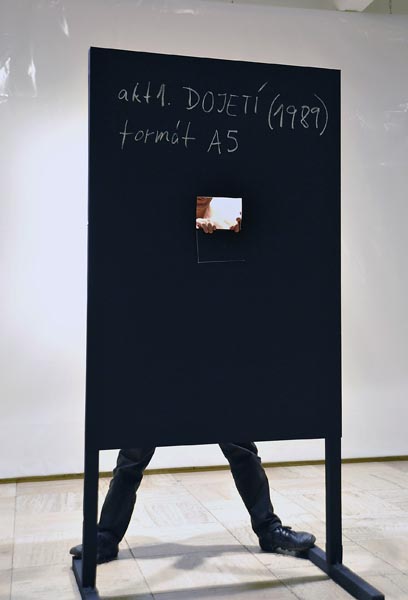 akt 1. DOJETÍ (1989)
formát A5